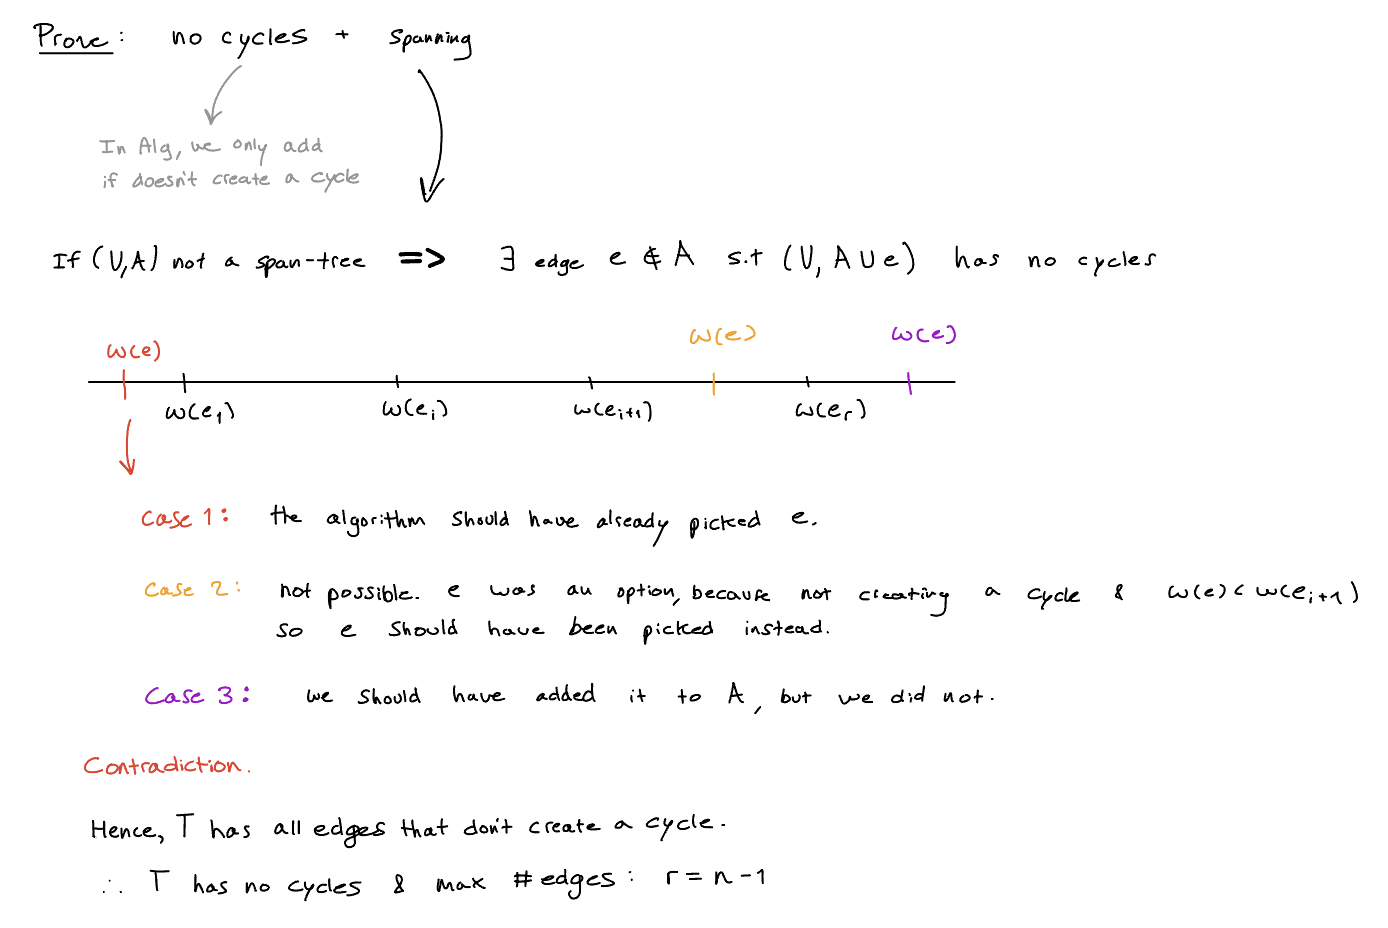 Prove: no cycles + spanning
In Alg, we only add
if doesn't create a cycle
If (V,A) not a span-tree => ∃ edge e ∉ A s.t (V, A ∪ e) has no cycles
w(e) w(e) w(e)
w(e₁) w(eᵢ) w(eᵢ₊₁) w(eᵣ)
Case 1: the algorithm should have already picked e.
Case 2: not possible. e was an option, because not creating a cycle & w(e) < w(eᵢ₊₁)
so e should have been picked instead.
Case 3: we should have added it to A, but we did not.
Contradiction.
Hence, T has all edges that don't create a cycle.
∴ T has no cycles & max #edges: r = n - 1